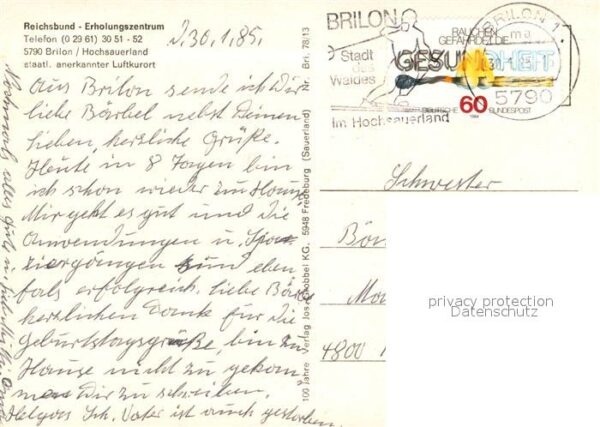 Reichsbund - Erholungszentrum
Telefon (0 29 61) 30 51 - 52
5790 Brilon / Hochsauerland
staatl. anerkannter Luftkurort
d. 30.1.85.
Aus Brilon sende ich Dir
liebe Bärbel nebst Deinen
Lieben, herzliche Grüße.
Heute in 8 Tagen bin
ich schon wieder zu Hause
Mir geht es gut und die
Anwendungen u. Spa-
ziergängen sind eben
falls erfolgreich. Liebe Bärbel
herzlichen Dank für die
Geburtstagsgrüße, bin zu
Hause nicht zu gekom
men Dir zu schreiben.
Helgas Sch. Vater ist auch gestorben.
Nochmals alles Gute u.
100 Jahre Verlag Jos. Grobbel KG, 5948 Fredeburg (Sauerland) Nr. Bri. 78.13
BRILON
Stadt
des
Waldes
Im Hochsauerland
RAUCHEN
GEFÄHRDET DIE
GESUNDHEIT
60
DEUTSCHE BUNDESPOST
BRILON 1
5790
Schwester
4800
privacy protection
Datenschutz